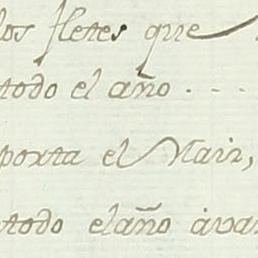 los fletes que
todo el año . - - -
porta el Mair,
todo elaño àva